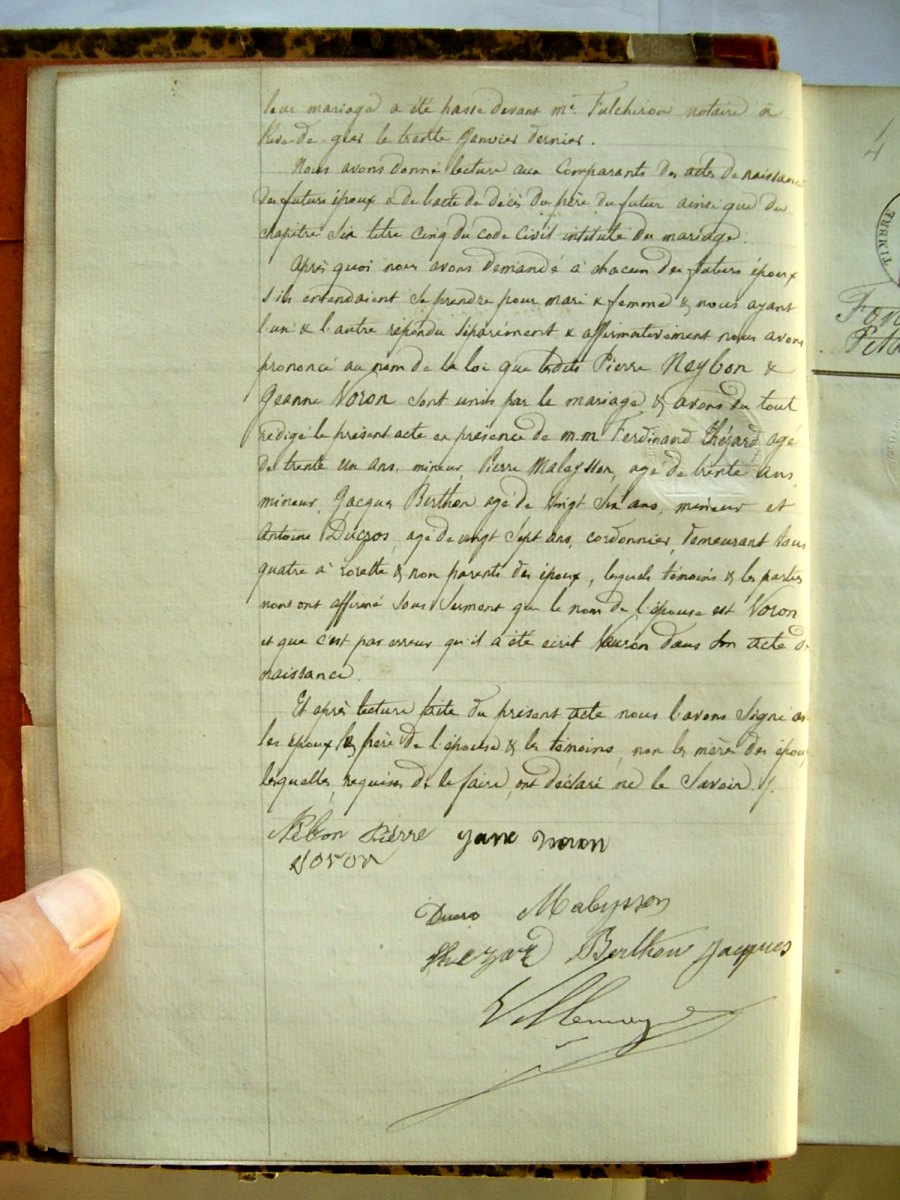 leur mariage a été passé devant me Fulchiron notaire à
Rive-de-gier le trente Janvier dernier.
Nous avons donné lecture aux Comparants des actes de naissance
des futurs époux & de l'acte de décès du père du futur ainsi que du
chapitre Six titre cinq du code civil intitulé du mariage.
Après quoi nous avons demandé à chacun des futurs époux
s'ils entendaient se prendre pour mari & femme & nous ayant
l'un & l'autre répondu séparément & affirmativement nous avons
prononcé au nom de la loi que lesdits Pierre Neybon &
Jeanne Voron sont unis par le mariage & avons du tout
rédigé le présent acte en présence de m.m. Ferdinand Chézard, agé
de trente un ans, mineur, Pierre Maleysson, agé de trente ans,
mineur, Jacques Berthon agé de vingt six ans, mineur et
Antoine Ducros, agé de vingt sept ans, cordonnier, demeurant tous
quatre à Lorette & non parents des époux, lesquels témoins & les parties
nous ont affirmé sous serment que le nom de l'épouse est Voron
et que c'est par erreur qu'il a été écrit Vauron dans son acte de
naissance.
Et après lecture faite du présent acte nous l'avons signé av
les époux le père de l'épouse & les témoins, non les mères des époux
lesquelles, requises de le faire, ont déclaré ne le Savoir./.
Nébon Pierre Jane voron
Voron
Ducro Maleysson
Chezard Berthon Jacques
4
TIMBRE